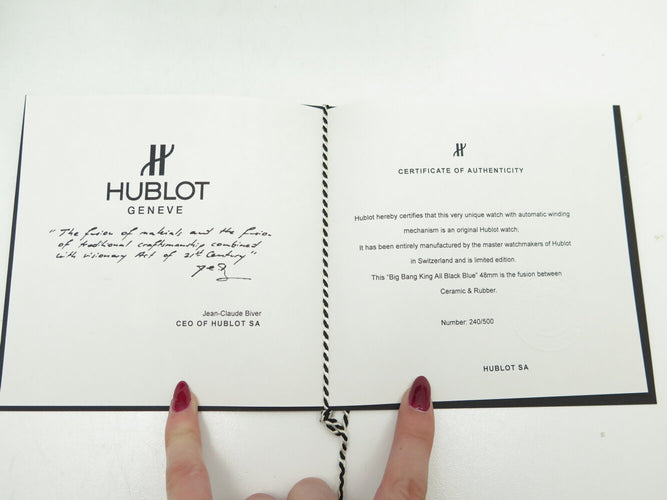 HUBLOT
GENEVE
"The fusion of materials and the fusion
of traditional craftsmanship combined
with visionary Art of 21st Century"
Jean-Claude Biver
CEO OF HUBLOT SA
CERTIFICATE OF AUTHENTICITY
Hublot hereby certifies that this very unique watch with automatic winding
mechanism is an original Hublot watch;
It has been entirely manufactured by the master watchmakers of Hublot
in Switzerland and is limited edition.
This "Big Bang King All Black Blue" 48mm is the fusion between
Ceramic & Rubber.
Number: 240/500
HUBLOT SA